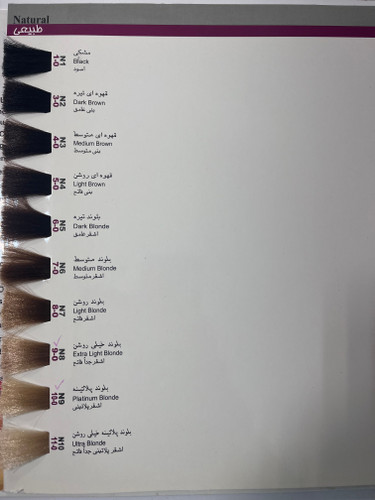 Natural
طبیعی
N1
1-0
مشکی
Black
اسود
N2
3-0
قهوه ای تیره
Dark Brown
بنی غامق
N3
4-0
قهوه ای متوسط
Medium Brown
بنی متوسط
N4
5-0
قهوه ای روشن
Light Brown
بنی فاتح
N5
6-0
بلوند تیره
Dark Blonde
اشقر غامق
N6
7-0
بلوند متوسط
Medium Blonde
اشقر متوسط
N7
8-0
بلوند روشن
Light Blonde
اشقر فاتح
N8
9-0
بلوند خیلی روشن
Extra Light Blonde
اشقر جداً فاتح
N9
10-0
بلوند پلاتینه
Platinum Blonde
اشقر پلاتینی
N10
11-0
بلوند پلاتینه خیلی روشن
Ultra Blonde
اشقر پلاتینی جداً فاتح